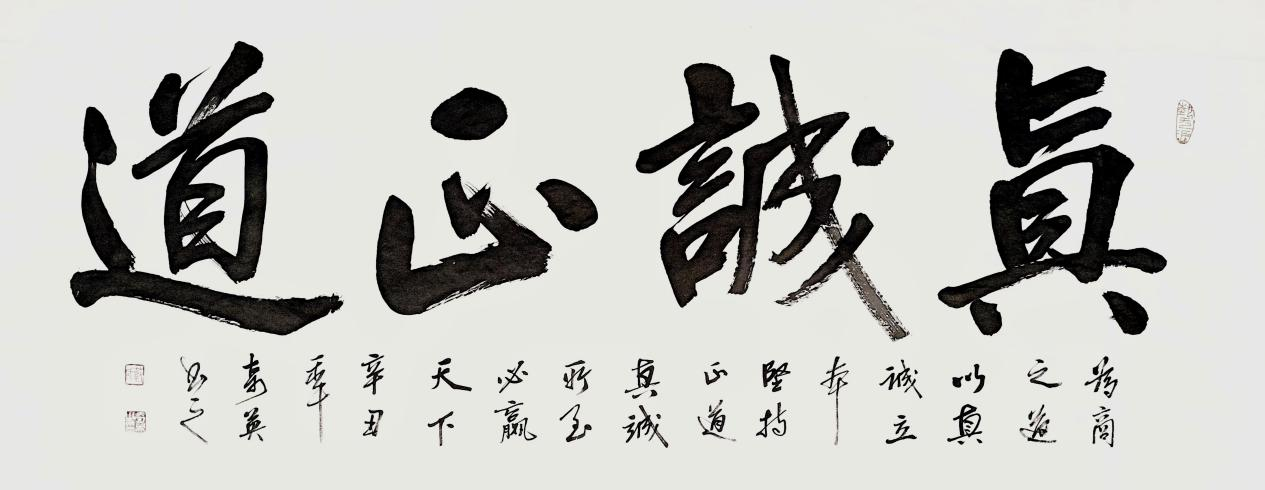 真誠正道
為商
之道
以真
誠立
本
堅持
正道
真誠
所至
必贏
天下
辛丑
年
英
书之